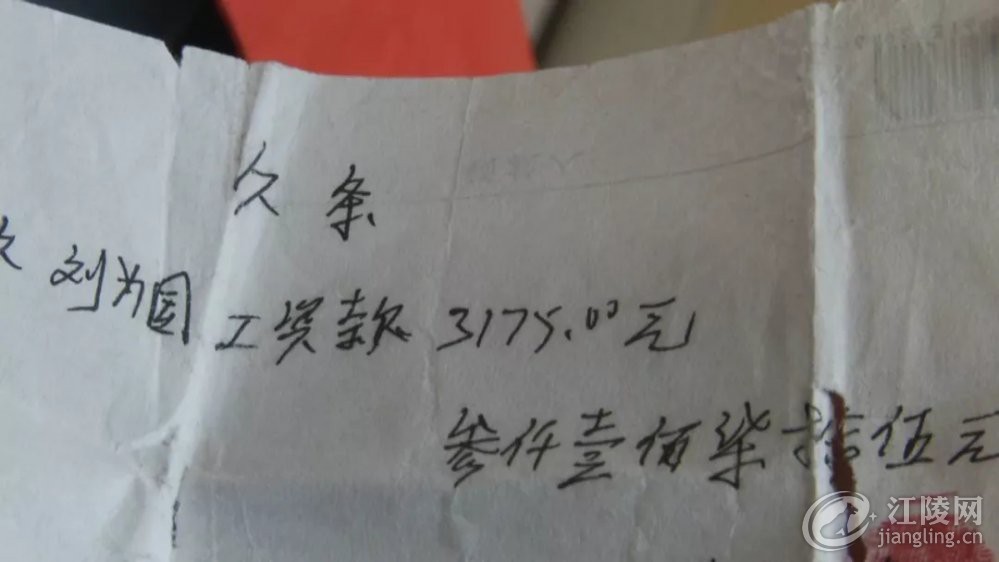 欠条
欠刘为国工资款3175.00元
叁仟壹佰柒拾伍元
江陵网
jiangling.cn